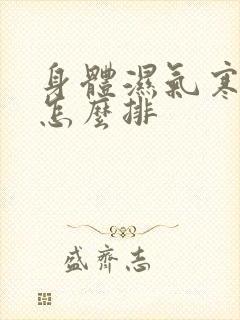 身體濕氣寒
怎麼排
盛齊志